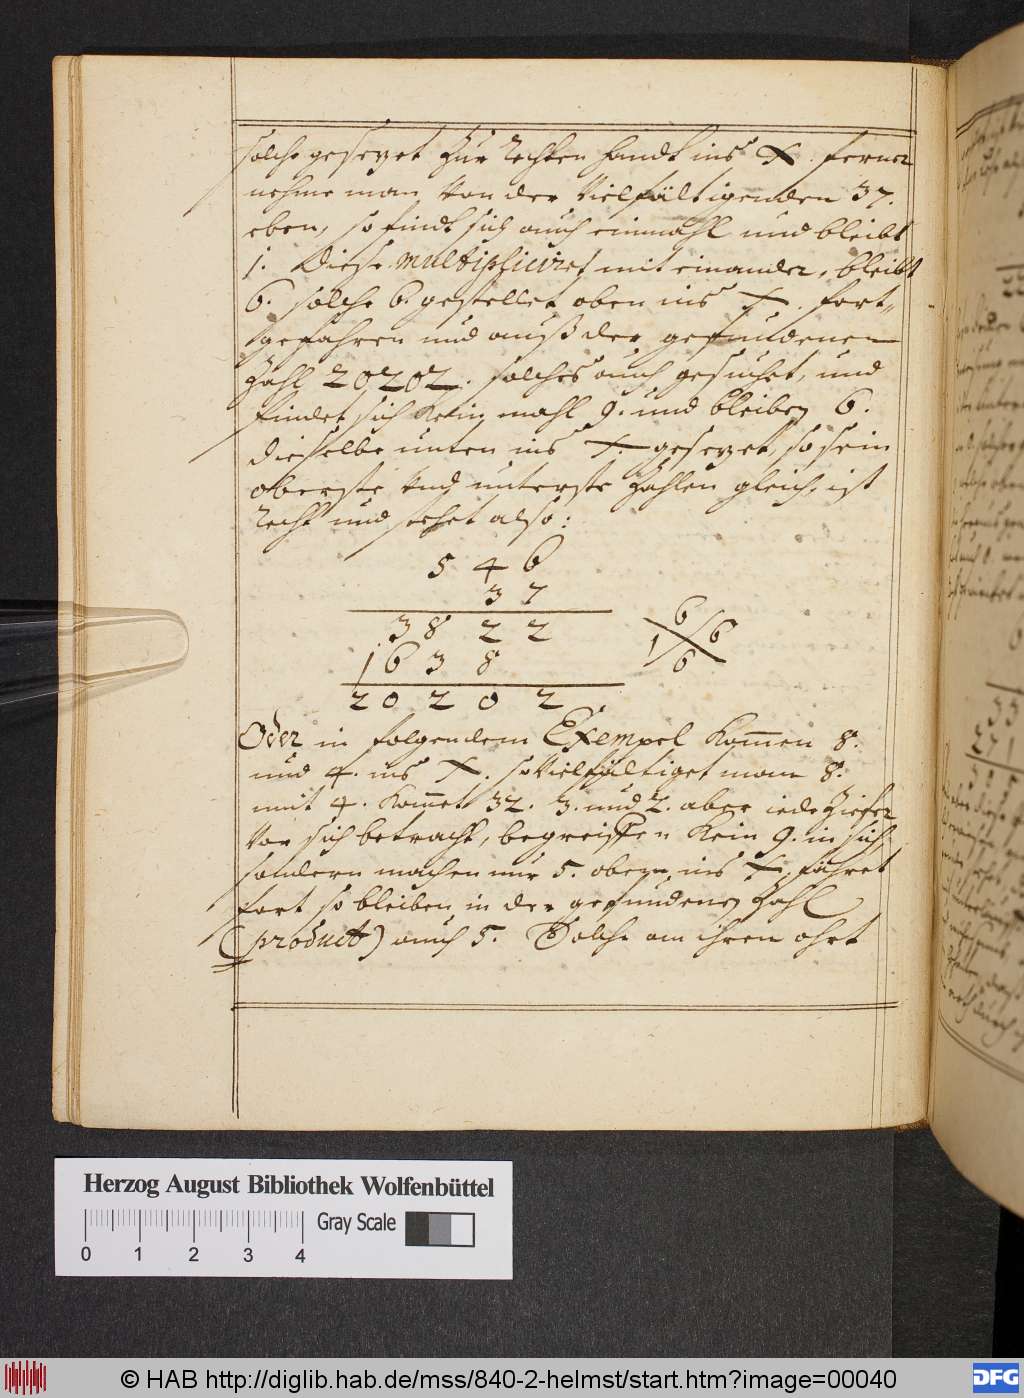 solche gesetzet zur rechten handt ins X. ferner
nehme man von der Vielfältigenden 37.
eben, so findt sich auch einmahl und bleibt
1. Diese multipliciret mit einander, bleibt
6. solche 6. gestellet oben ins X. fort-
gefahren und auß der gefundenen
Zahl 20202. solches auch gesuchet, und
findet sich kein mahl 9. und bleiben 6.
dieselbe unten ins X. gesetzet, so sein
oberste und unterste Zahlen gleich, ist
recht und stehet also:
5 4 6
3 7
3 8 2 2
1 6 3 8
2 0 2 0 2
6
1 6
6
Oder in folgendem Exempel kom̅en 8.
und 4. ins X. so Vielfältiget man 8.
mit 4. kom̅et 32. 3. und 2. aber iede Ziefer
vor sich betracht, begreiffen kein 9. in sich
sondern machen nur 5. oben ins X, fähret
fort so bleiben in der gefundenen Zahl
(product) auch 5. Solche an ihren ohrt
Herzog August Bibliothek Wolfenbüttel
Gray Scale
0 1 2 3 4
© HAB http://diglib.hab.de/mss/840-2-helmst/start.htm?image=00040
DFG